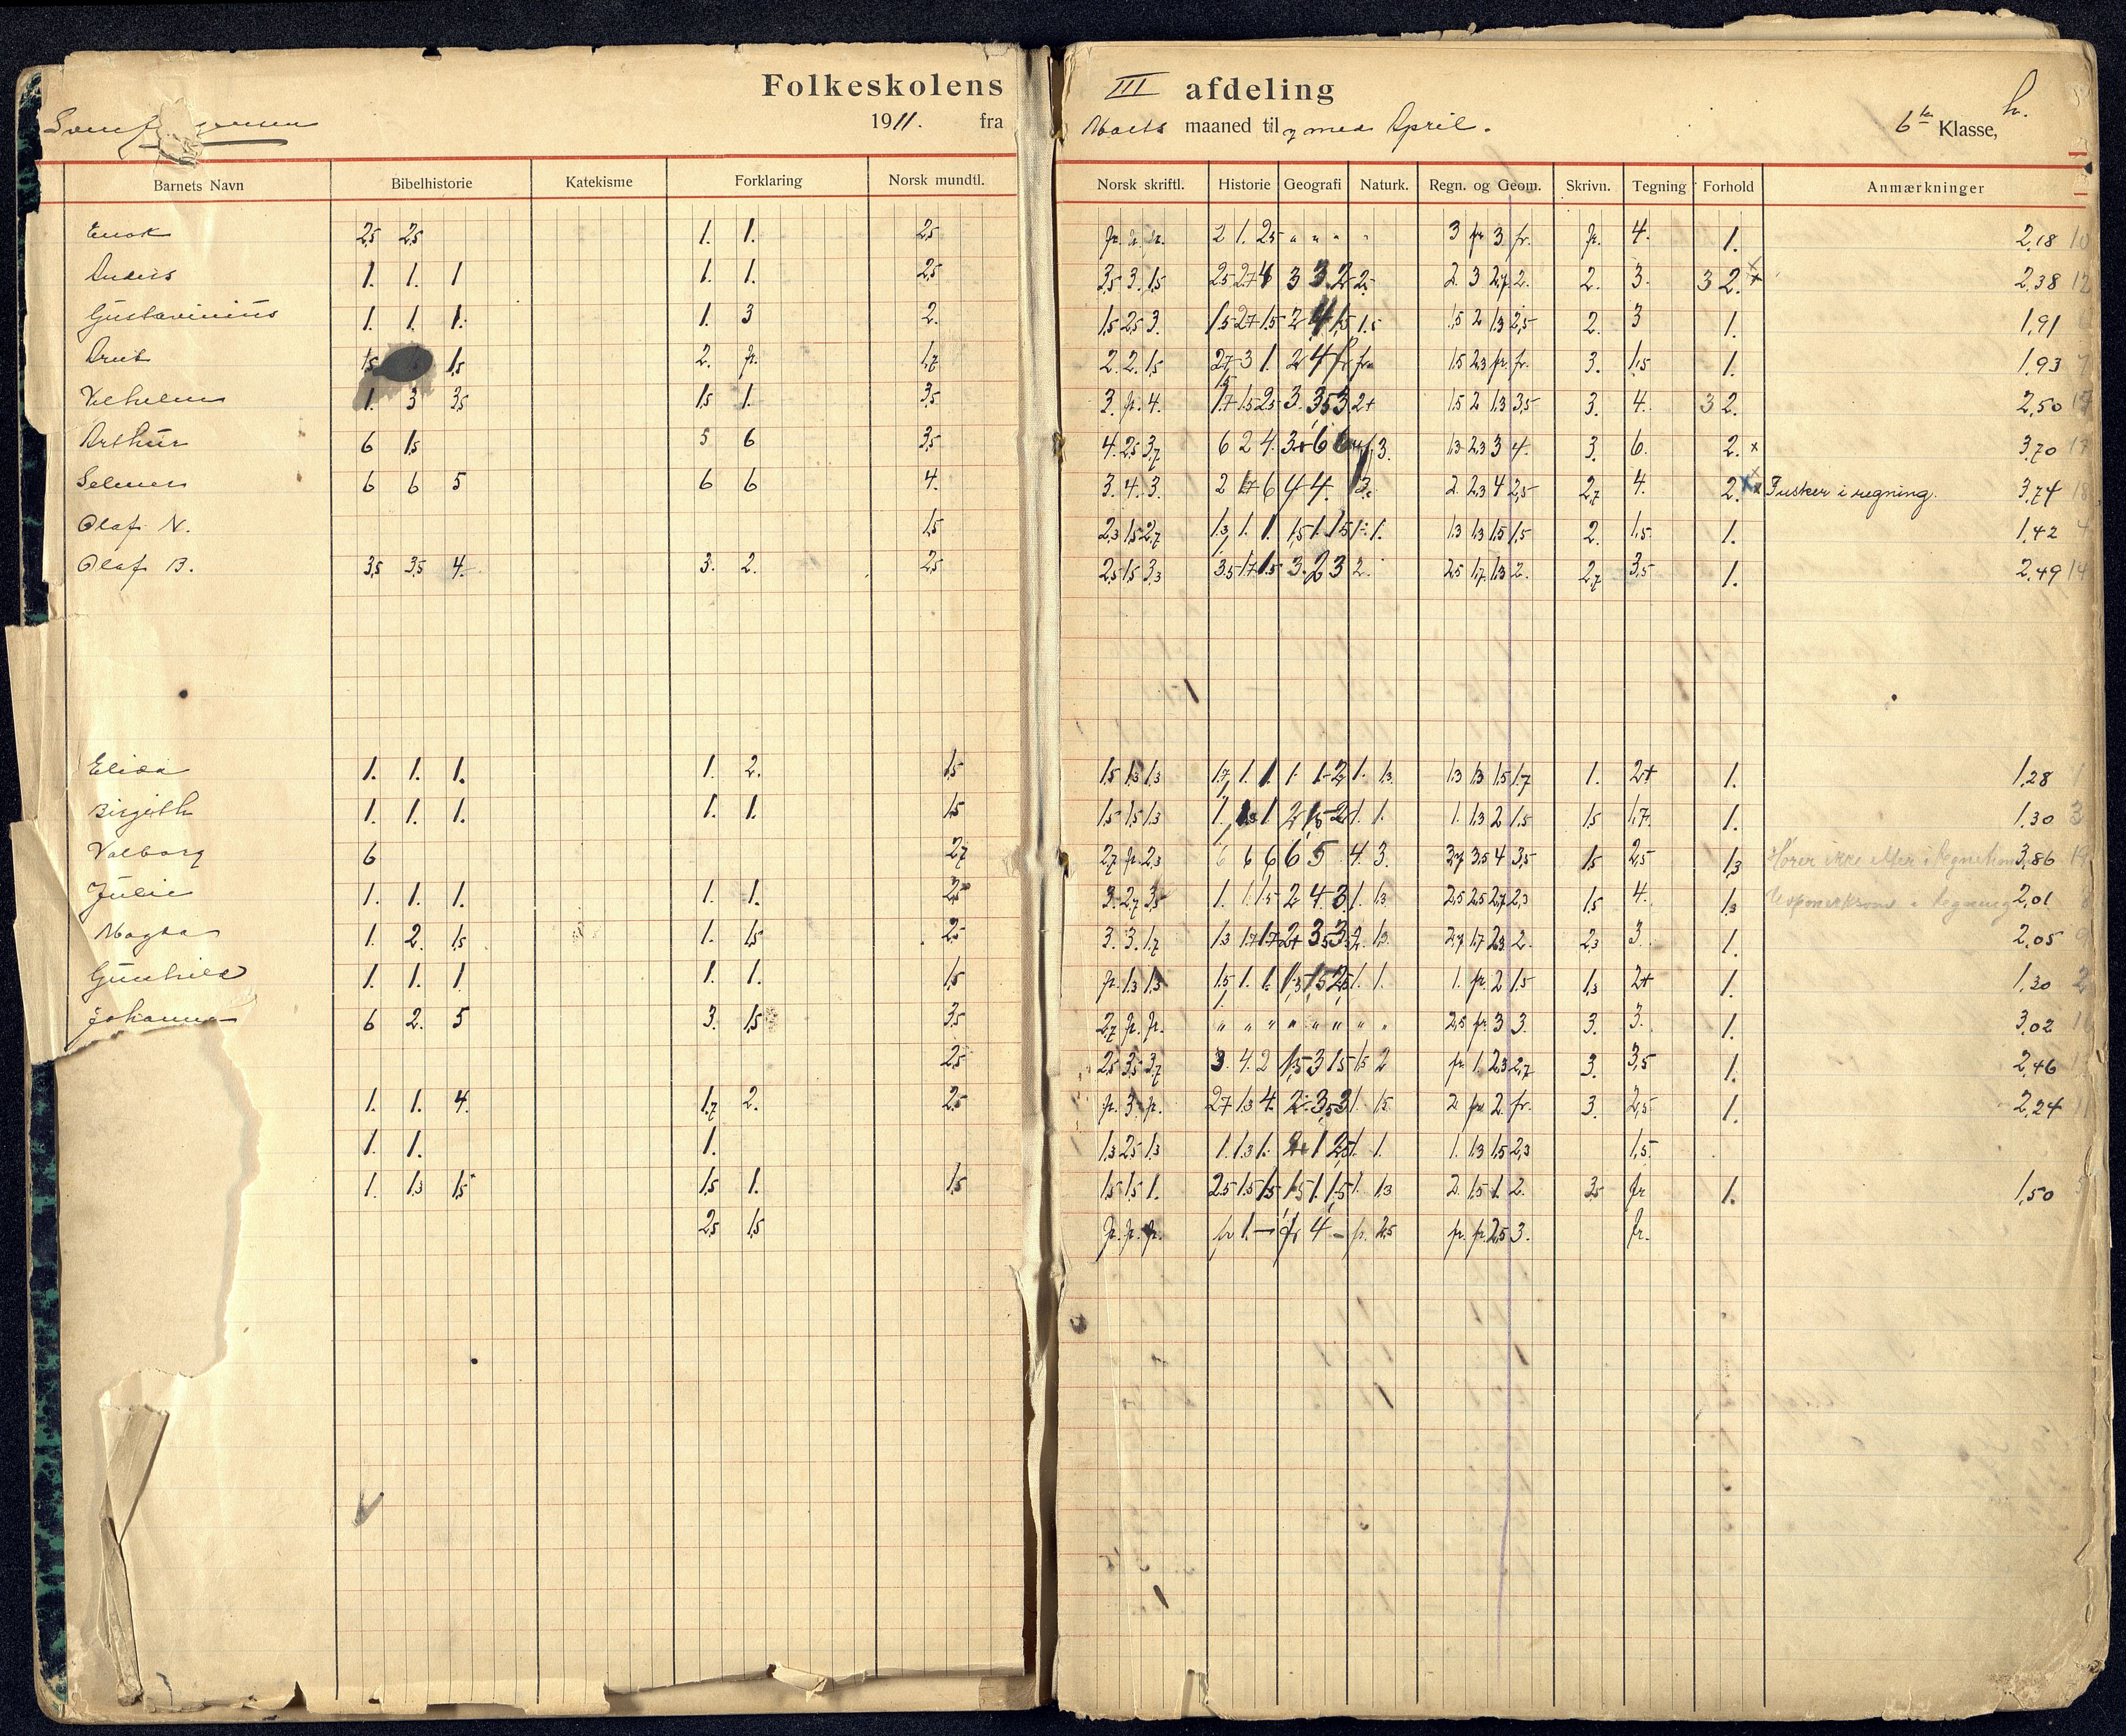 Folkeskolens III afdeling
1911. fra Marts maaned til og med April. 6te Klasse, h.
Barnets Navn Bibelhistorie Katekisme Forklaring Norsk mundtl. Norsk skriftl. Historie Geografi Naturk. Regn. og Geom. Skrivn. Tegning Forhold Anmærkninger
Enok 2,5 2,5 1. 1. 2,5 fr. fr. fr. 2 1. 2,5 " " " " 3 fr 3 fr. fr. 4. 1. 2,18 10
Anders 1. 1. 1 1. 1. 2,5 3,5 3. 1,5 2,5 2,7 4 3 3. 2 2. 2. 3 2,7 2. 2. 3. 3 2. 2,38 12
1. 1. 1. 1. 3 2. 1,5 2,5 3. 1,5 2,7 1,5 2 4 1,5 1.5 1,5 2 1,3 2,5 2. 3 1. 1,91
1,5 1,5 2. fr. 1,7 2. 2. 1,5 2,7 3 1. 2 4 fr fr. 1,5 2,3 fr. fr. 3. 1,5 1. 1,93 7
Vilhelm 1. 3 3,5 1,5 1. 3,5 3. fr. 4. 1,7 1,5 2,5 3. 3,5 3 2+ 1,5 2 1,3 3,5 3. 4. 3 2. 2,50
Arthur 6 1,5 5 6 3,5 4. 2,5 3,7 6 2 4. 6 6 3. 1,3 2,3 3 4. 3. 6. 2. x 3,70
Selmer 6 6 5 6 6 4. 3. 4. 3. 2 1,7 6 4 4. 3. 2. 2,3 4 2,5 2,7 4. 2. x Fusker i regning. 3,74 18
Olaf N. 1,5 2,3 1,5 2,7 1,3 1. 1 1,5 1. 1,5 1. 1. 1,3 1,3 1,5 1,5 2. 1,5 1. 1,42 4
Olaf B. 3,5 3,5 4. 3. 2. 2,5 2,5 1,5 3,3 3,5 1,7 1,5 3. 2 3 2. 2,5 1,7 1,3 2. 2,7 3,5 1. 2,49 14
Elisa 1. 1. 1. 1. 2. 1,5 1,5 1,3 1,3 1,7 1. 1 1. 1. 2 1. 1,3. 1,3 1,3 1,5 1,7 1. 2+ 1. 1,28 1
Birgith 1. 1. 1. 1. 1. 1,5 1,5 1,5 1,3 1. 1,3 1 2 1,5 2 1. 1. 1. 1,3 2 1,5 1,5 1,7. 1. 1,30 3
Valborg 6 2,7 2,7 fr. 2,3 6 6 6 6 5 4. 3. 3,7 3,5 4 3,5 1,5 2,5 1,3 Hører ikke efter i 3,86 19
Julie 1. 1. 1. 1. 1. 3. 2,7 3,5 1. 1. 1,5 2 4 3. 1. 1,3 2,5 2,5 2,7 2,3 1,5 4. 1,3 2,01 8
Magda 1. 2. 1,5 1. 1,5 2,5 3. 3. 1,7 1,3 1,7 1,7 2+ 3,5 3. 2. 1,3. 2,7 1,7 2,3 2. 2,3 3. 1. 2,05 9
Gunhild 1. 1. 1. 1. 1. 1,5 fr. 1,3 1,3 1,5 1. 1. 1,3 1,5 2,5 1. 1. 1. fr. 2 1,5 1,3 2+ 1. 1,30 2
Johanne 6 2. 5 3. 1,5 3,5 2,7 fr. fr. " " " " " " " " 2,5 fr. 3 3. 3. 3. 1. 3,02 16
2,5 2,5 3,5 3,7 3. 4. 2 1,5 3 1,5 1,5 2 fr 1. 2,3 2,7 3. 3,5 1. 2,46
1. 1. 4. 1,7 2. 2,5 fr. 3. fr. 2,7 1,3 4. 2. 3,5 3 1. 1,5. 2 fr 2. fr. 3. 2,5 1. 2,24 11
1. 1. 1. 1,3 2,5 1,3 1. 1,3 1. 1 2,5 1. 1. 1. 1,3 1,5 2,3 1,5
1. 1,3 1,5 1,5 1. 1,5 1,5 1,5 1. 2,5 1,5 1,5 1,5 1. 1,5 1. 1,3 2. 1,5 1. 2. 3,5 fr 1. 1,50 5
2,5 1,5 fr. fr. fr. fr 1. — fr 4 – fr. 2,5 fr. fr. 2,5 3. fr.